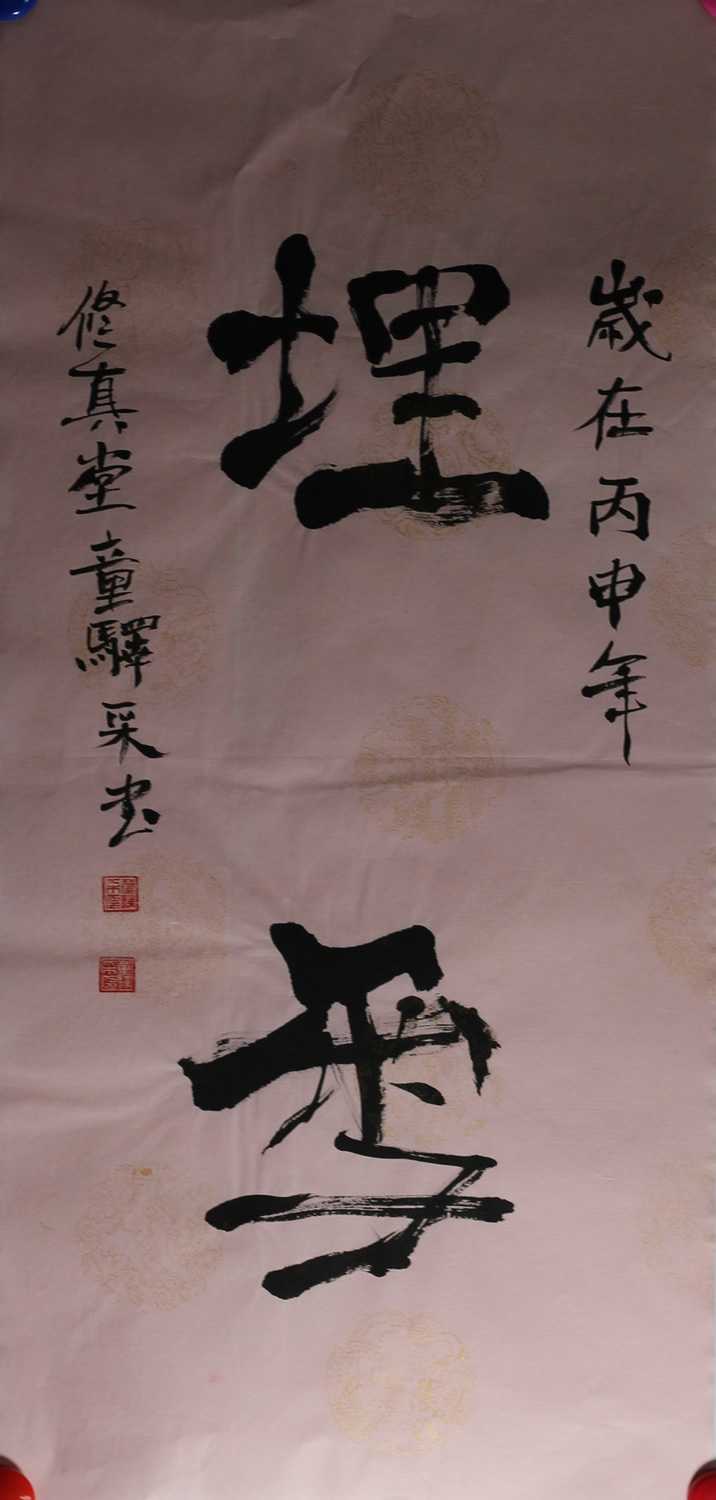 歲在丙申年
埋雪
修真堂童驛采书